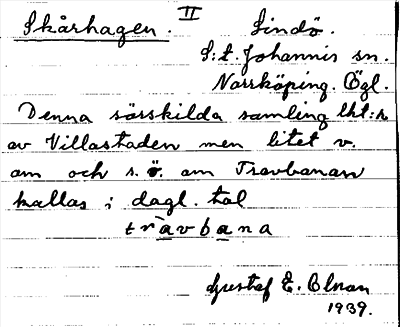 II
Skårhagen. Lindö.
S:t Johannis sn.
Norrköping. Ögl.
Denna särskilda samling lht:r
av Villastaden men litet v.
om och s. ö. om Travbanan
kallas i dagl. tal
travbana
Gustaf E. Olson
1939.